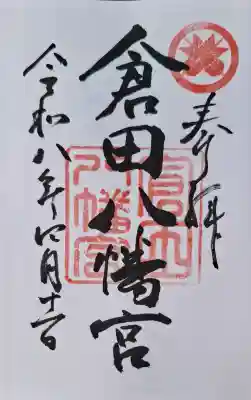 奉拝
倉田八幡宮
令和八年四月十一日
倉田八幡宮